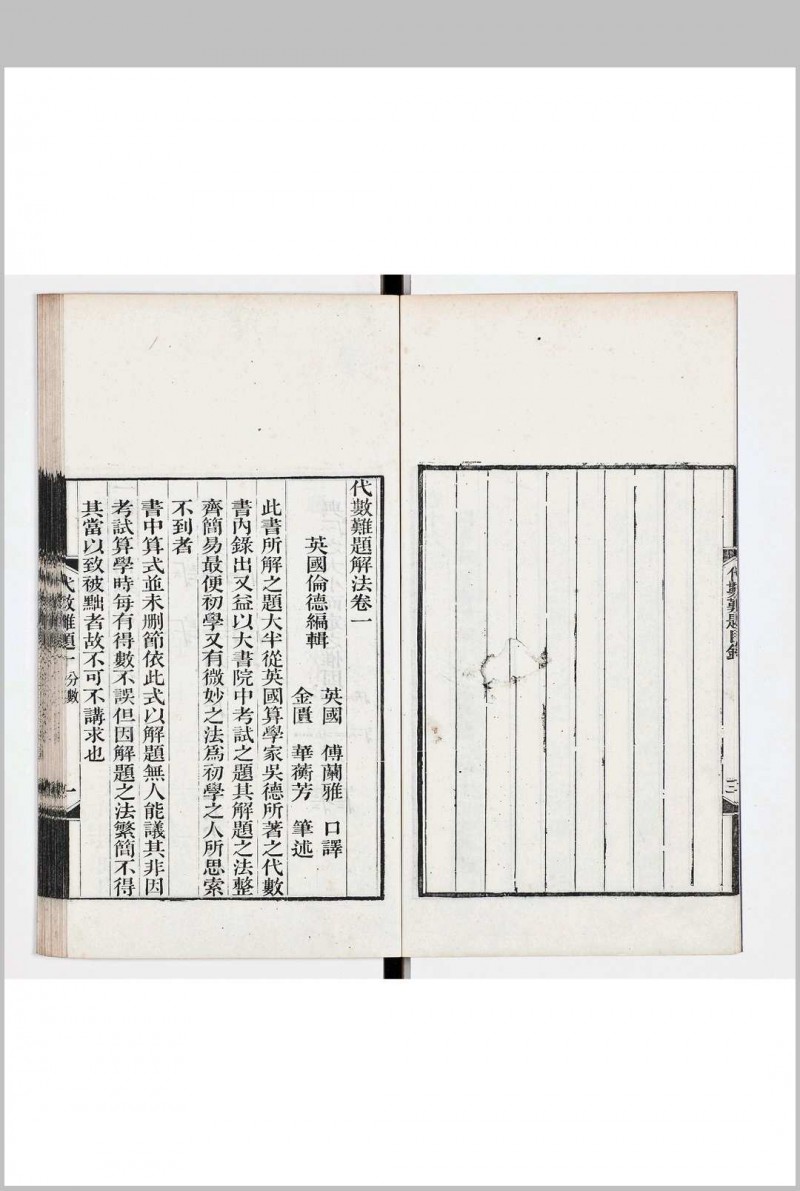 代數難題目錄
三
代數難題解法卷一
英國倫德編輯
英國　傅蘭雅　口譯
金匱　華蘅芳　筆述
此書所解之題大半從英國算學家吳德所著之代數
書內錄出又益以大書院中考試之題其解題之法整
齊簡易最便初學又有微妙之法爲初學之人所思索
不到者
書中算式並未刪節依此式以解題無人能議其非因
考試算學時每有得數不誤但因解題之法繁簡不得
其當以致被黜者故不可不講求也
代數難題一　分數
一